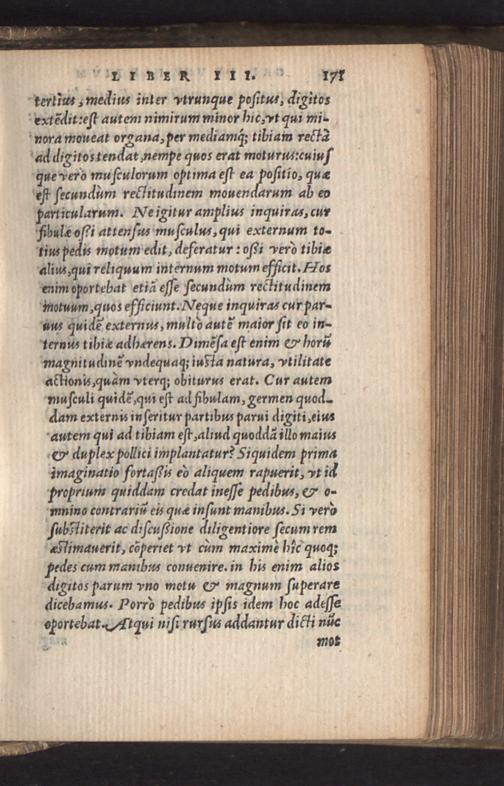 LIBER III. 171
tertius, medius inter vtrunque positus, digitos
extēdit: est autem nimirum minor hic, vt qui mi-
nora moueat organa, per mediamq; tibiam rectà
ad digitos tendat, nempe quos erat moturus: cuius
que verò musculorum optima est ea positio, quæ
est secundùm rectitudinem mouendarum ab eo
particularum. Ne igitur amplius inquiras, cur
fibulæ ossi attensus musculus, qui externum to-
tius pedis motum edit, deferatur: ossi verò tibiæ
alius, qui reliquum internum motum efficit. Hos
enim oportebat etiā esse secundùm rectitudinem
motuum, quos efficiunt. Neque inquiras cur par-
uus quidē externus, multò autē maior sit eo in-
ternus tibiæ adhærens. Dimēsa est enim & horū
magnitudinē vndequaq; iusta natura, vtilitate
actionis, quàm vterq; obiturus erat. Cur autem
musculi quidē, qui est ad fibulam, germen quod-
dam externis inseritur partibus parui digiti, eius
autem qui ad tibiam est, aliud quoddā illo maius
& duplex pollici implantatur? Siquidem prima
imaginatio fortassis eò aliquem rapuerit, vt id
proprium quiddam credat inesse pedibus, & o-
mnino contrariū eis quæ insunt manibus. Si verò
substiterit ac discussione diligentiore secum rem
æstimauerit, cōperiet vt cùm maximè hîc quoq;
pedes cum manibus conuenire. in his enim alios
digitos parum vno motu & magnum superare
dicebamus. Porrò pedibus ipsis idem hoc adesse
oportebat. Atqui nisi rursus addantur dicti nūc
mos